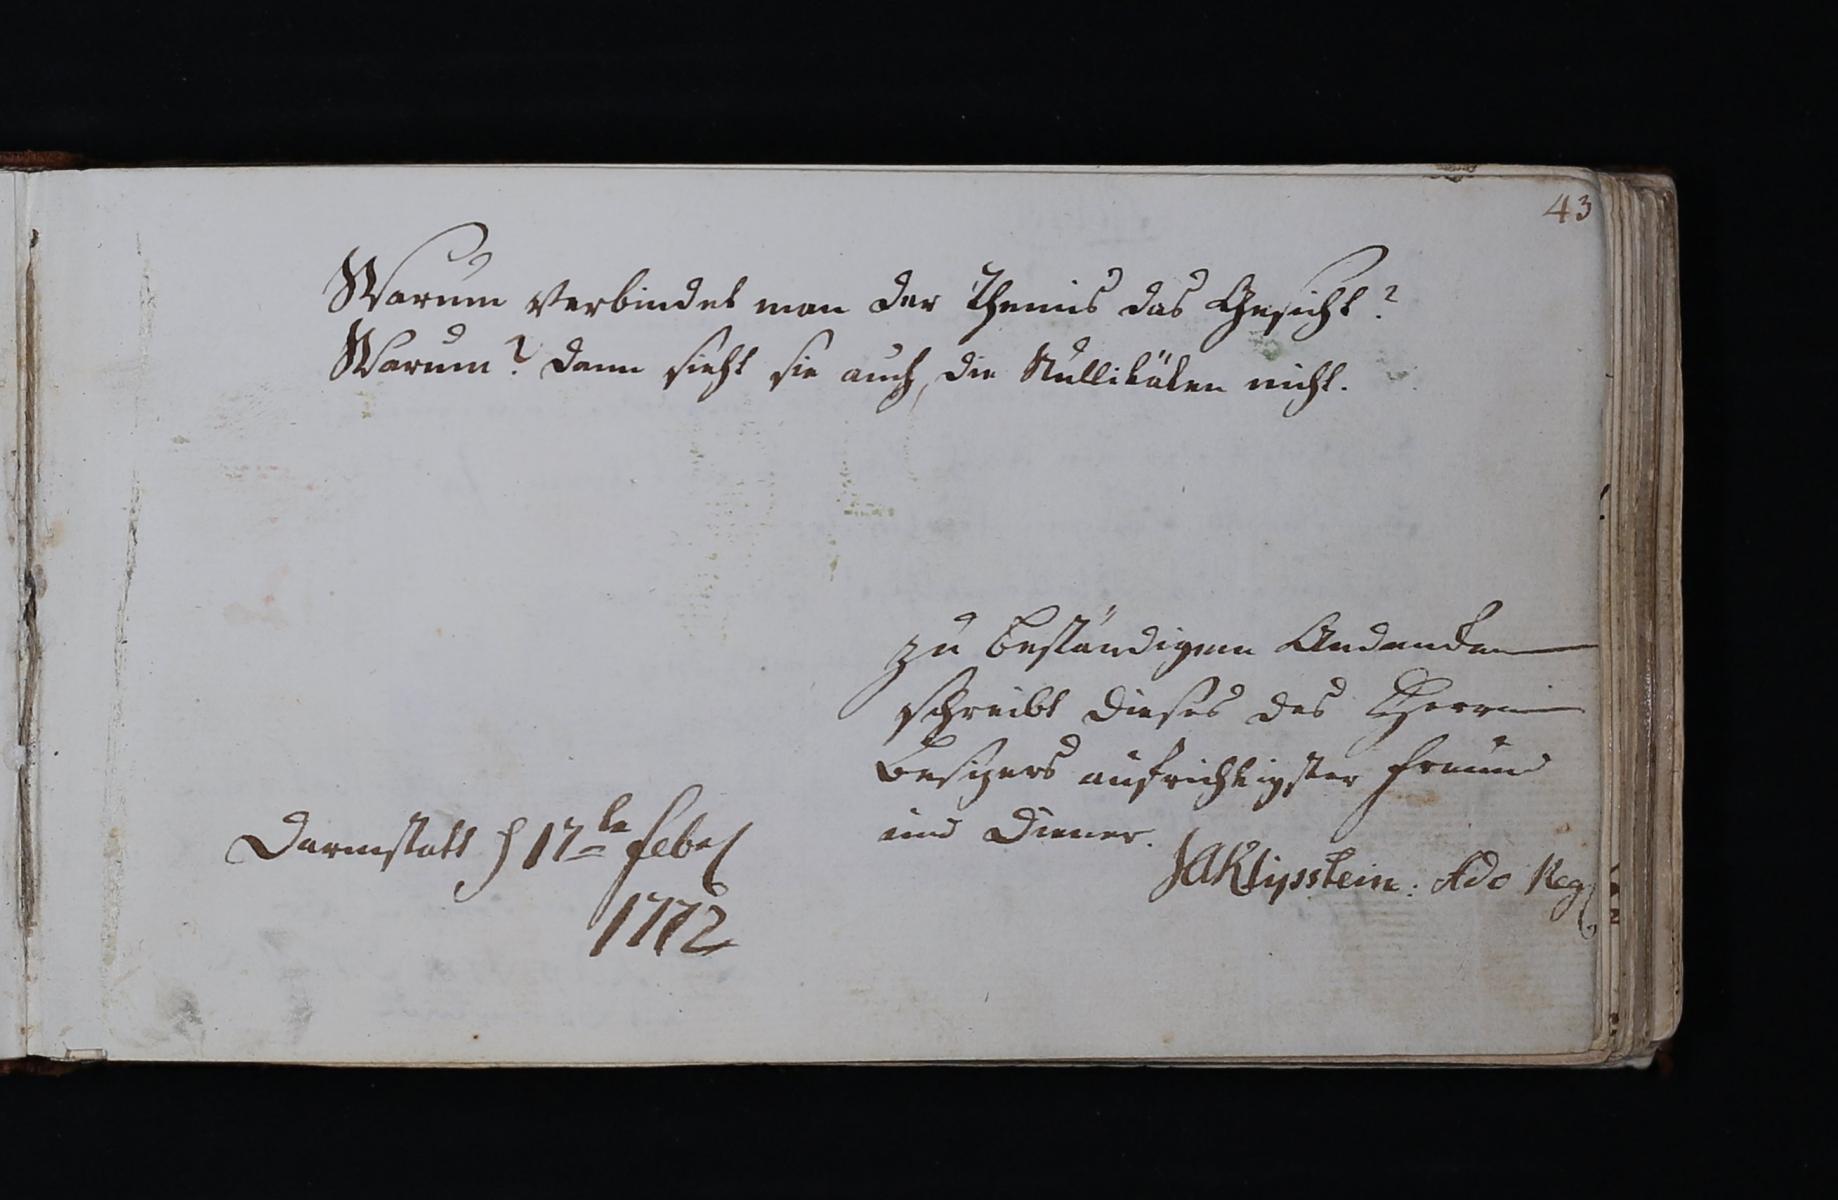 43
Warum verbindet man der Themis das Gesicht?
Warum? dann sieht sie auch, die Nullitäten nicht.
zu beständigem Andenken
schreibt dieses des Herrn
Besizers aufrichtigster Freund
und Diener.
Darmstatt d 17te Febr
JAKlipstein. Adv Reg
1772